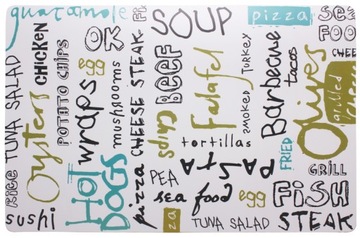 guacamole
CHICKEN
POTATO CHIPS
TUNA SALAD
Oysters
sushi
OK
egg
wraps
mushrooms
Hot
DOGS
CHEESE STEAK
pizza
SOUP
BEEF
Falafel
smoked turkey
tortillas
PASTA
PEA
sea food
za
TUNA SALAD
egg
pizza
Barbecue
tacos
FRIED
Olives
grilled
GRILL
FISH
STEAK